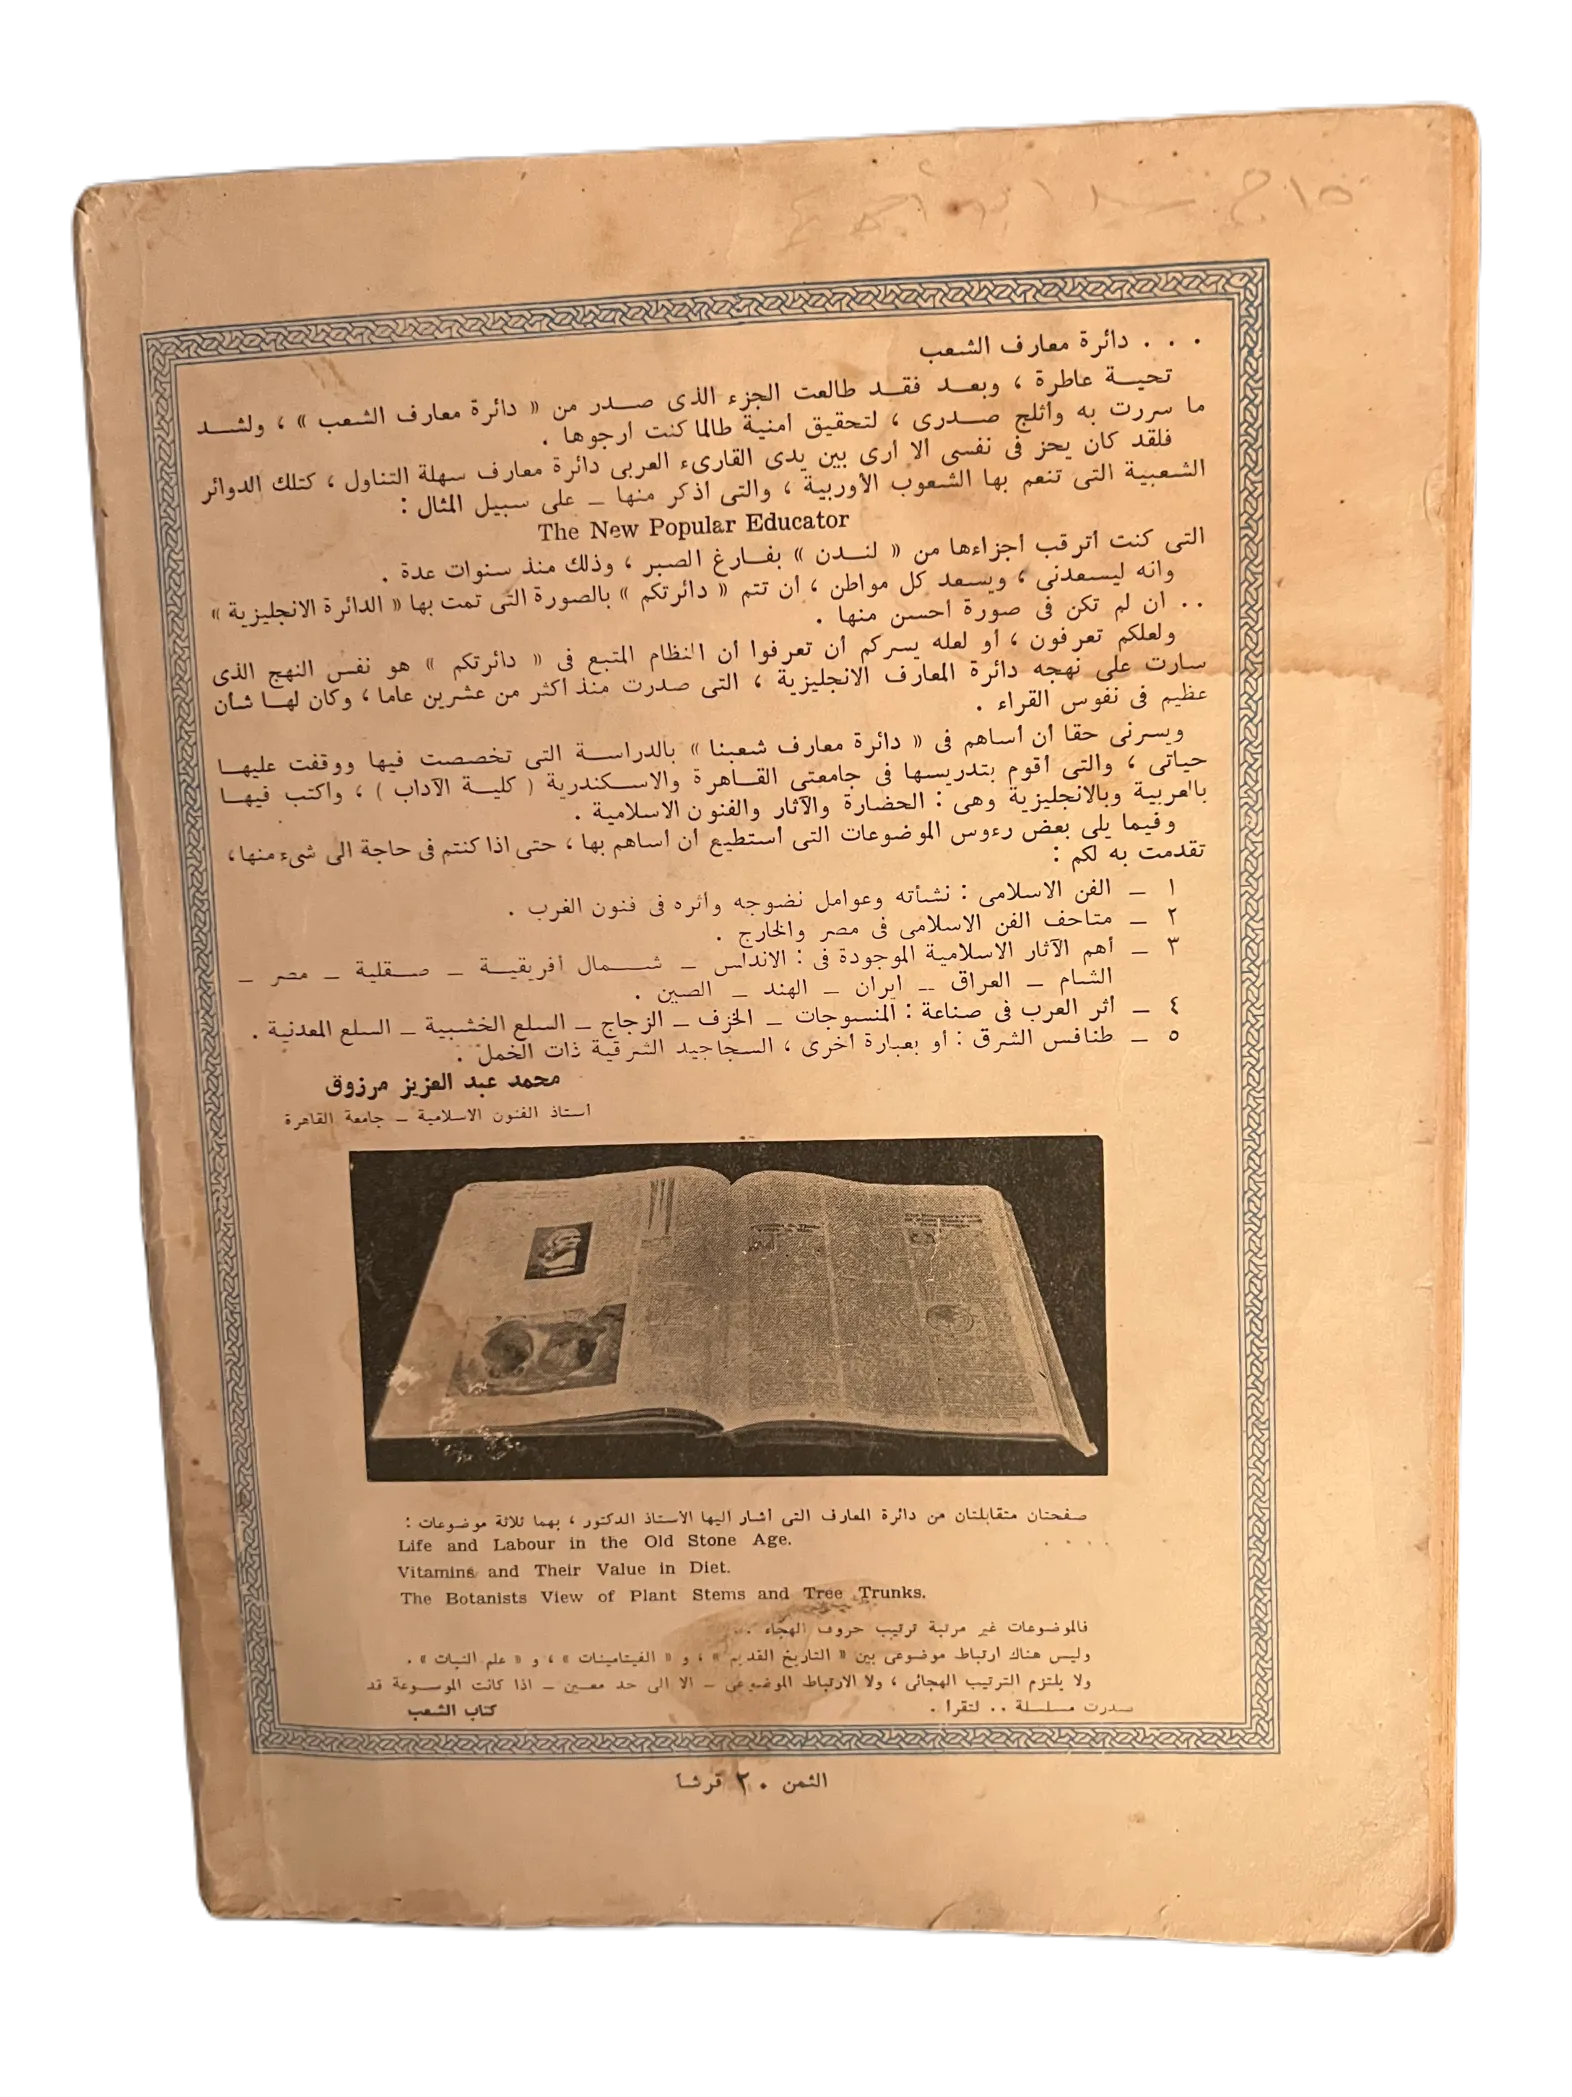 . . . دائرة معارف الشعب
تحيــة عاطرة ، وبعــد فقــد طالعت الجزء الذى صــدر من « دائرة معارف الشعب » ، ولشــد
ما سررت به وأثلج صــدرى ، لتحقيق أمنية طالما كنت أرجوها .
فلقد كان يحز فى نفسى ألا أرى بين يدى القارىء العربى دائرة معارف سهلة التناول ، كتلك الدوائر
الشعبية التى تنعم بها الشعوب الأوربية ، والتى أذكر منها ــ على سبيل المثال :
The New Popular Educator
التى كنت أترقب أجزاءها من « لنــدن » بفــارغ الصبر ، وذلك منذ سنوات عدة .
وانه ليسعدنى ، ويسعد كل مواطن ، أن تتم « دائرتكم » بالصورة التى تمت بها « الدائرة الانجليزية »
. . ان لم تكن فى صورة أحسن منها .
ولعلكم تعرفون ، أو لعله يسركم أن تعرفوا أن النظام المتبع فى « دائرتكم » هو نفس النهج الذى
سارت على نهجه دائرة المعارف الانجليزية ، التى صدرت منذ أكثر من عشرين عاما ، وكان لهــا شأن
عظيم فى نفوس القراء .
ويسرنى حقا أن أساهم فى « دائرة معارف شعبنا » بالدراســة التى تخصصت فيها ووقفت عليهــا
حياتى ، والتى أقوم بتدريسها فى جامعتى القــاهرة والاسكندرية ( كليــة الآداب ) ، وأكتب فيهــا
بالعربية وبالانجليزية وهى : الحضارة والآثار والفنون الاسلامية .
وفيما يلى بعض رءوس الموضوعات التى أستطيع أن أساهم بها ، حتى اذا كنتم فى حاجة الى شىء منها ،
تقدمت به لكم :
١ ــ الفن الاسلامى : نشأته وعوامل نضوجه وأثره فى فنون الغرب .
٢ ــ متاحف الفن الاسلامى فى مصر والخارج .
٣ ــ أهم الآثار الاسلامية الموجودة فى : الاندلس ــ شــمال أفريقيــة ــ صــقلية ــ مصر ــ
الشام ــ العراق ــ ايران ــ الهند ــ الصين .
٤ ــ أثر العرب فى صناعة : المنسوجات ــ الخزف ــ الزجاج ــ السلع الخشبية ــ السلع المعدنية .
٥ ــ طنافس الشرق : أو بعبارة أخرى ، السجاجيد الشرقية ذات الخمل .
محمد عبد العزيز مرزوق
أستاذ الفنون الاسلامية ــ جامعة القاهرة
صفحتان متقابلتان من دائرة المعارف التى أشار اليها الأستاذ الدكتور ، بهما ثلاثة موضوعات :
Life and Labour in the Old Stone Age.
Vitamins and Their Value in Diet.
The Botanists View of Plant Stems and Tree Trunks.
فالموضوعات غير مرتبة ترتيب حروف الهجاء . .
وليس هناك ارتباط موضوعى بين « التاريخ القديم » ، و « الفيتامينات » ، و « علم النبات » .
ولا يلتزم الترتيب الهجائى ، ولا الارتباط الموضوعى ــ الا الى حد معــين ــ اذا كانت الموسوعة قد
صدرت مسلسلة . . لتقرأ .
كتاب الشعب
الثمن ٢٠ قرشا